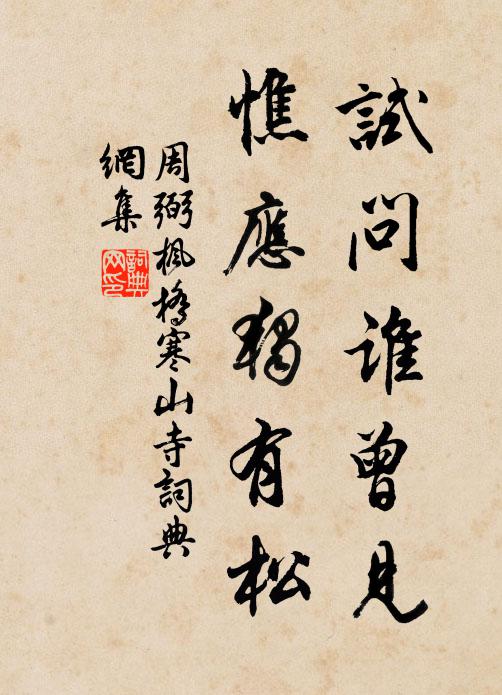 試問誰曾見
憔應獨有松
周弼楓橋寒山寺詞典
網集
詞典網印